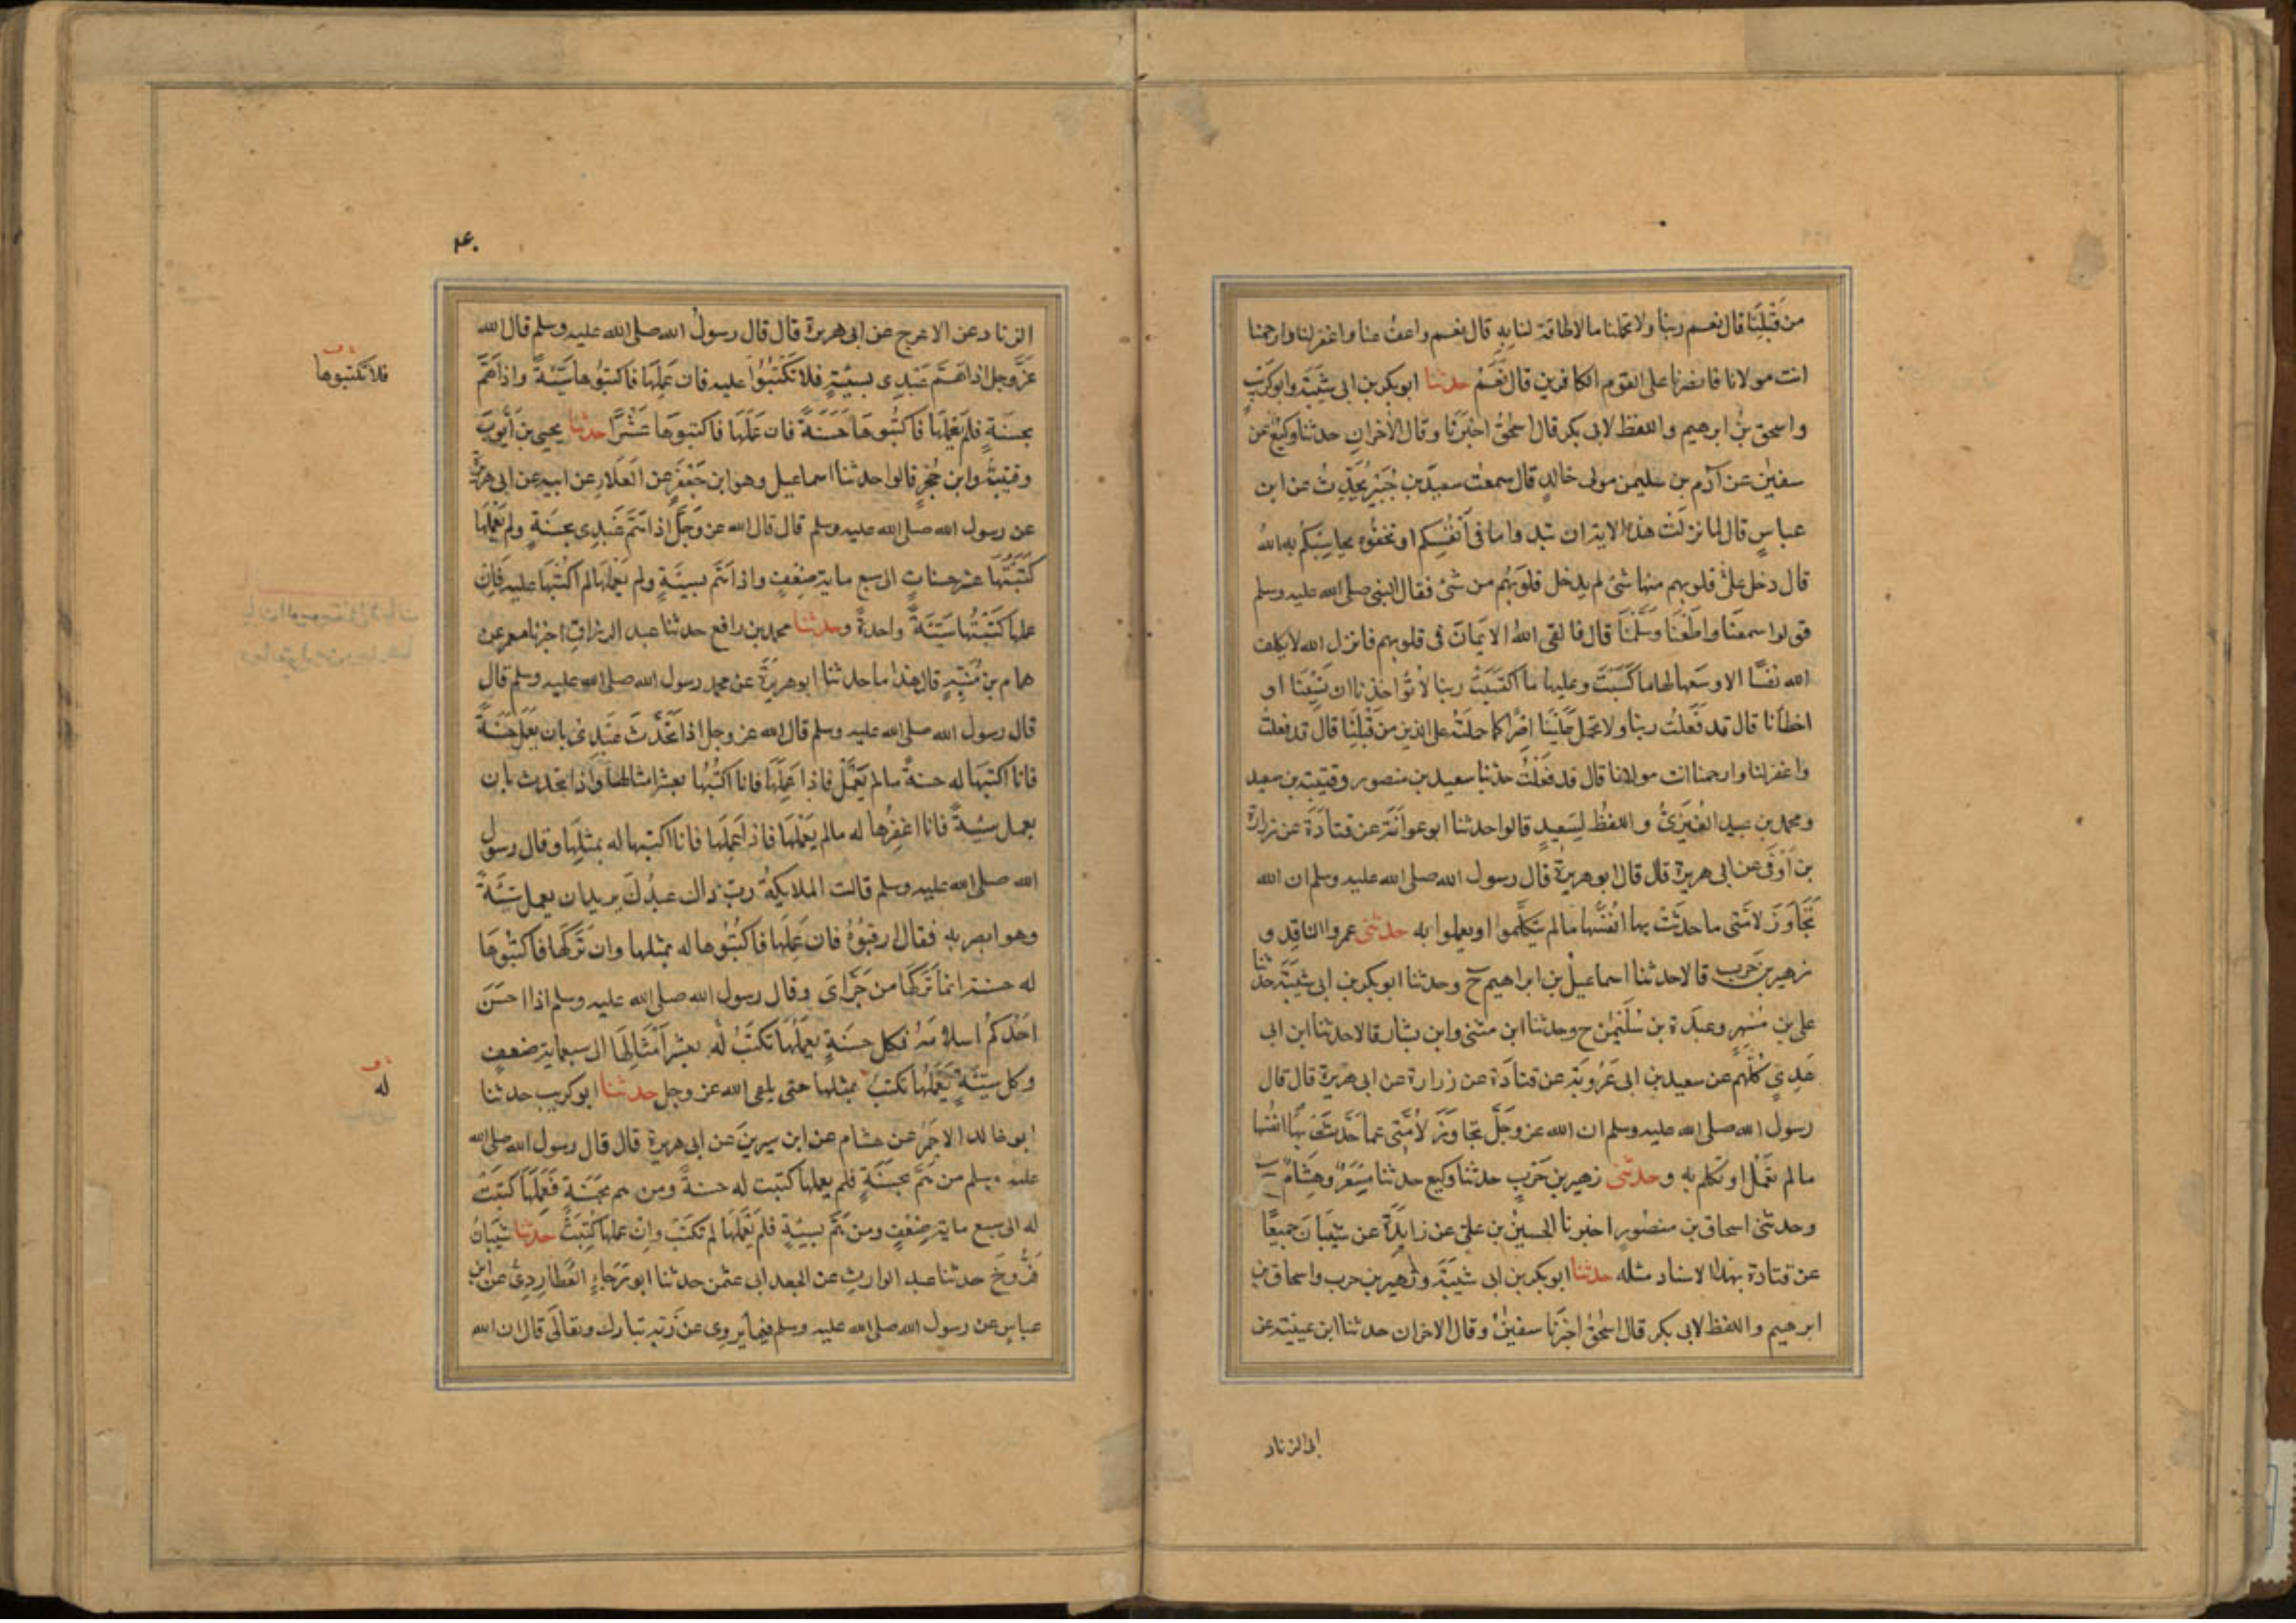 من قَبْلِنَا قال نعم ربنا ولا تحملنا ما لا طاقة لنا به قال نعم واعف عنا واغفر لنا وارحمنا
انت مولانا فانصرنا على القوم الكافرين قال نَعَمْ حدثنا ابو بكر بن ابى شَيْبَة وابو كُرَيْبٍ
واسحق بنُ ابرهيم واللفظ لابى بكر قال اسحٰقُ اخبَرَنَا وقال الاٰخران حدثنا وكيعٌ عن
سفيٰن عن آدم بن سليمٰن مولى خالدٍ قال سمعت سعيدَ بن جُبَيْرٍ يُحَدِّثُ عن ابن
عباسٍ قال لما نزلَتْ هذه الاية ان تبدوا ما فى اَنفُسِكم او تخفُوه يحاسِبْكُم به الله
قال دخل على قلوبهم منها شئٌ لم يدخل قلوبَهُم من شئ فقال النبى صلى الله عليه وسلم
قولوا سمعنَا واطَعْنَا وسَلَّمْنَا قال فالقى اللهُ الايمَانَ فى قلوبهم فانزل الله لا يكلف
الله نفسًا الا وسَعها لها ما كَسَبَتْ وعليها ما اكتَسَبَتْ ربنا لا تُؤاخذنا ان نَسِيْنَا او
اخطأنا قال قد فَعَلتُ ربنا ولا تحمل عَلَيْنَا اِصْرًا كما حملتَهُ على الذين من قَبْلِنَا قال قد فعلتُ
واغفر لنا وارحمنا انت مولانا قال قد فَعَلْتُ حدثنا سعيد بن منصور وقتيبة بن سعيد
ومحمد بن عبيد الغُبَرِىُّ واللفظُ لِسَعِيدٍ قالوا حدثنا ابو عوانَةَ عن قتادَةَ عن زرارة
بن اَوْفَى عن ابى هريرة قال قال ابو هريرة قال رسول الله صلى الله عليه وسلم ان الله
تَجَاوَزَ لامتى ما حدثَتْ بها انفُسَها ما لم يتكلَّموا او يعملوا به حدثنى عمرو الناقِد و
زهير بن حَرب قالا حدثنا اسماعيلُ بن ابراهيم ح وحدثنا ابو بكر بن ابى شَيْبَةَ حدثنا
على بن مُسْهِرٍ وعبدَة بن سُلَيْمٰن ح وحدثنا ابن مثنى وابن بشار قالا حدثنا ابن ابى
عَدِىٍّ كُلُّهم عن سعيد بن ابى عَرُوبَة عن قتادَة عن زرارة عن ابى هريرة قال قال
رسول الله صلى الله عليه وسلم ان الله عز وجَلَّ تجاوَزَ لاُمَّتى عما حَدَّثَتْ بهِ انفُسَها
ما لم تَعْمَل او تكلم به وحدثنى زهير بن حَرْبٍ حدثنا وكيع حدثنا مِسْعَرٌ وهِشَامٌ ح
وحدثنى اسحاق بن منصُورٍ اخبرنا الحسينُ بن علىّ عن زايِدَةَ عن شَيْبَانَ جميعًا
عن قتادة بهذا الاسناد مثله حدثنا ابو بكر بن ابى شَيْبَةَ وزُهَير بن حرب واسحاق بن
ابرهيم واللفظ لابى بكر قال اسحٰقُ اخبَرَنا سفيٰنُ وقال الاخران حدثنا ابن عيينة عن
ابى الزناد
۴۰
الزناد عن الاعرج عن ابى هريرة قال قال رسولُ الله صلى الله عليه وسلم قال الله
عَزَّ وجل اذا هَمَّ عَبْدِى بسيئةٍ فلا تَكْتُبُوْا عليه فان عَمِلَهَا فاكتبُوها سَيِّئَةً واذا هَمَّ
بحسَنةٍ فلم يَعْمَلْهَا فاكتُبُوهَا حَسَنَةً فان عَمِلَهَا فاكتبوهَا عَشْرًا حدثنا يحيى بن أيُّوبَ
وقتيبةُ وابن حُجْرٍ قالوا حدثنا اسماعيل وهو ابن جَعْفَرٍ عن العَلَاءِ عن ابيه عن ابى هريرة
عن رسول الله صلى الله عليه وسلم قال قال الله عز وجَلَّ اذا هَمَّ عَبْدِى بحسَنةٍ ولم يَعْمَلْهَا
كَتَبْتُهَا عشر حسناتٍ الى سبع ماية ضِعْفٍ واذا هَمَّ بسيئَةٍ ولم يَعْمَلْهَا لم اكْتُبْهَا عليه فَاِن
عملها كَتَبْتُهَا سَيِّئَةً واحدةً وحدثنا محمد بن رافع حدثنا عبد الرزاق اخبرنا معمر عن
همام بن مُنَبِّهٍ قال هذا ما حدثنا ابو هريرَةَ عن محمد رسول الله صلى الله عليه وسلم قال
قال رسول الله صلى الله عليه وسلم قال الله عز وجل اذا تَحَدَّثَ عَبْدِى بان يَعْمَلَ حَسَنَةً
فانا اكتبهَا له حسنةً ما لم يَعْمَلْ فاذا عَمِلَهَا فانا اكتُبُهَا بعشر امثالها واذا تحَدث بان
يعمل سيئةً فانا اغفِرُها له مالم يَعْمَلْهَا فاذا عَمِلَهَا فانا اكتبها له بمثلِهَا وقال رسول
الله صلى الله عليه وسلم قالت الملايكةُ ربّ ذاك عبدُكَ يريد ان يعمل سَيِّئَةً
وهو ابصر به فقال ارقُبُوْهُ فان عَمِلَها فاكتُبُوها له بمثلها وان تَرَكَها فاكتُبُوهَا
له حسنة انما تَرَكَهَا من جَرَّاىَ وقال رسول الله صلى الله عليه وسلم اذا احسَنَ
احَدُكمُ اسلامَهُ فكل حسَنَةٍ يعمَلُهَا تكتَبُ لَه بعشر اَمْثَالِهَا الى سبعماية ضعفٍ
وكل سَيِّئَةٍ يَعْمَلُهَا تكتبُ بمثلها حتى يلقى الله عز وجل حدثنا ابو كريب حدثنا
ابو خالد الاحمَرُ عن هشام عن ابن سيرينَ عن ابى هريرة قال قال رسول الله صلى الله
عليه وسلم من هَمَّ بحسَنَةٍ فلم يعملها كتبت له حسنةً ومن هم بحَسَنَةٍ فَعَمِلَهَا كتبَتْ
له الى سبع ماية ضِعْفٍ ومن هَمَّ بسيئةٍ فلم يَعْمَلْهَا لم تكتَبْ وان عملها كُتِبَتْ حدثنا شَيبَانُ
فَرُّوخَ حدثنا عبد الوارثِ عن الجعد ابى عثمٰن حدثنا ابو رَجَاءٍ العُطَارِدِىُّ عن ابن
عباسٍ عن رسول الله صلى الله عليه وسلم فيما يَروِى عن رَبِّهِ تبارك وتعالَى قال ان الله
فلا تكتبوها
له